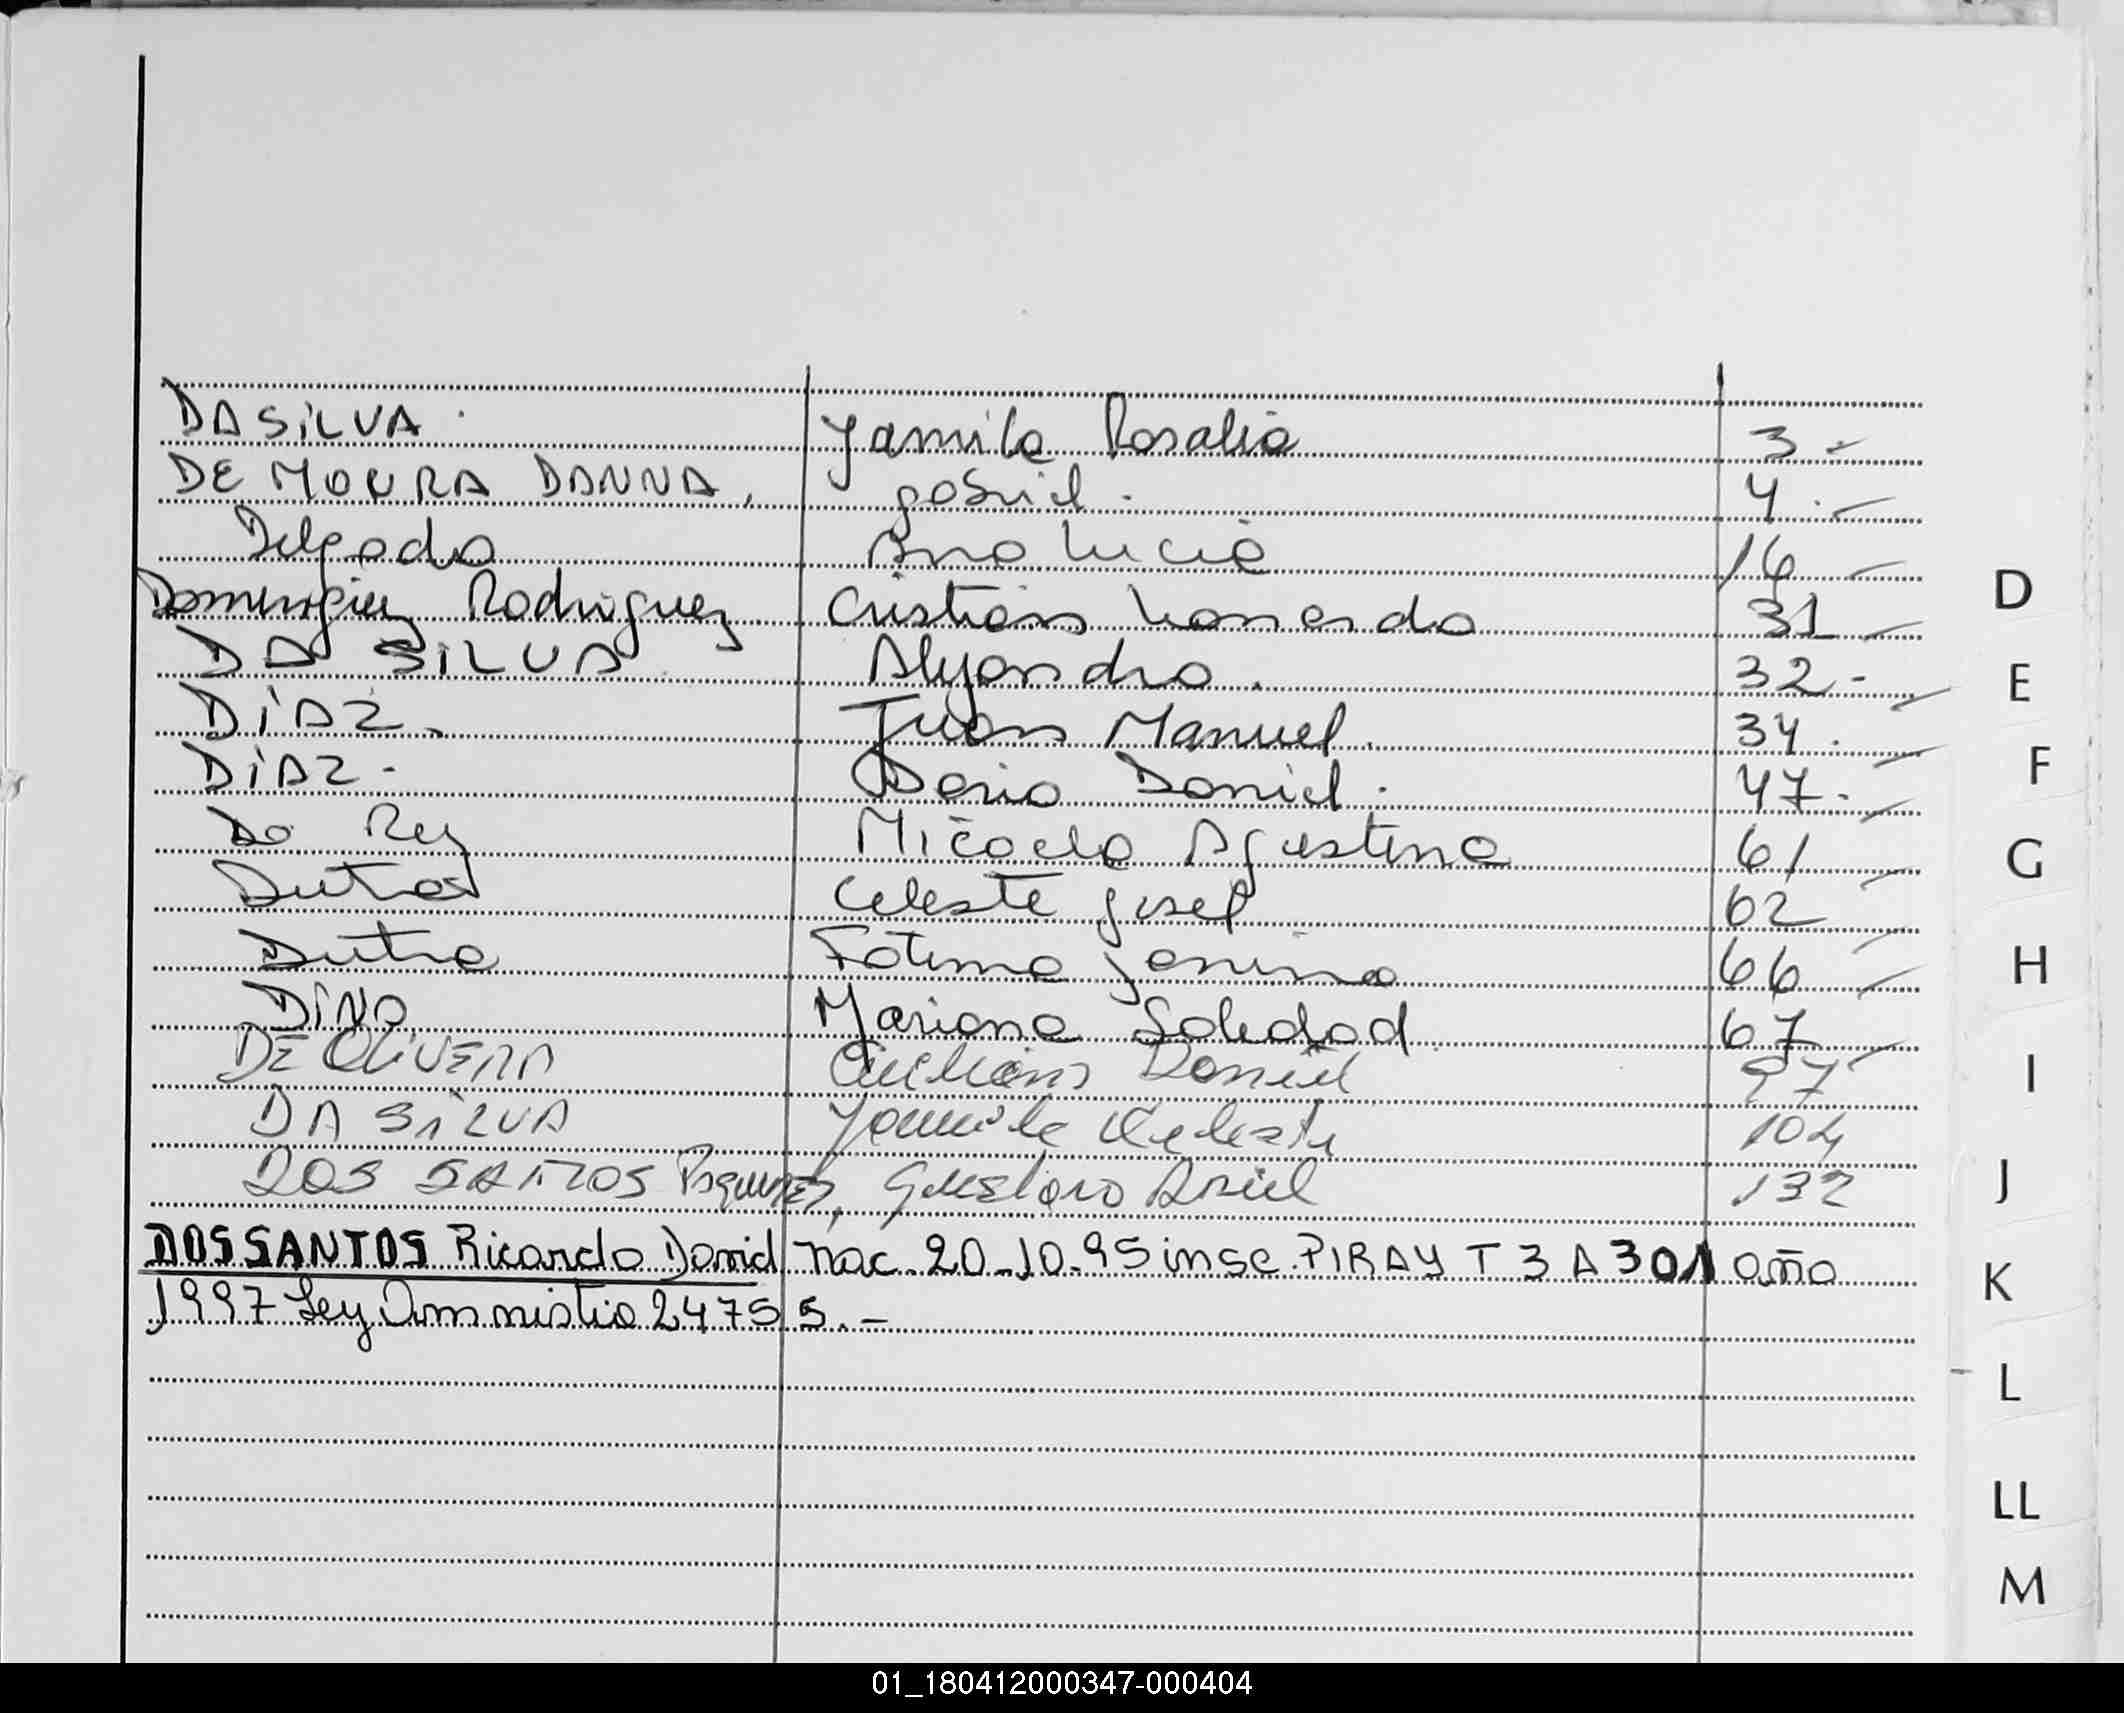 DA SiLVA. Yamila Rosalia 3 -
DE MOURA DANNA. gabriel. 4. -
Delgado Ana Lucia 16 -
Dominguez Rodriguez Cristian Leonardo 31 -
DA SILVA Alejandro. 32 -
DiAZ. Juan Manuel. 34.
DiAZ. Dario Daniel. 47.
Do Rey Micaela Agustina 61
Dutra Celeste gisel 62
Dutra Fatima Janina 66
DiNO Mariana Soledad 67
DE OLiVERA Daniel 97
DA SiLVA Yamila Celeste 104
DOS SANTOS Gustavo Ariel 132
DOSSANTOS Ricardo David nac. 20-10-95 insc. PIRAY T 3 A 301 año
1997 Ley Amnistia 24755.-
D
E
F
G
H
I
J
K
L
LL
M
01_180412000347-000404